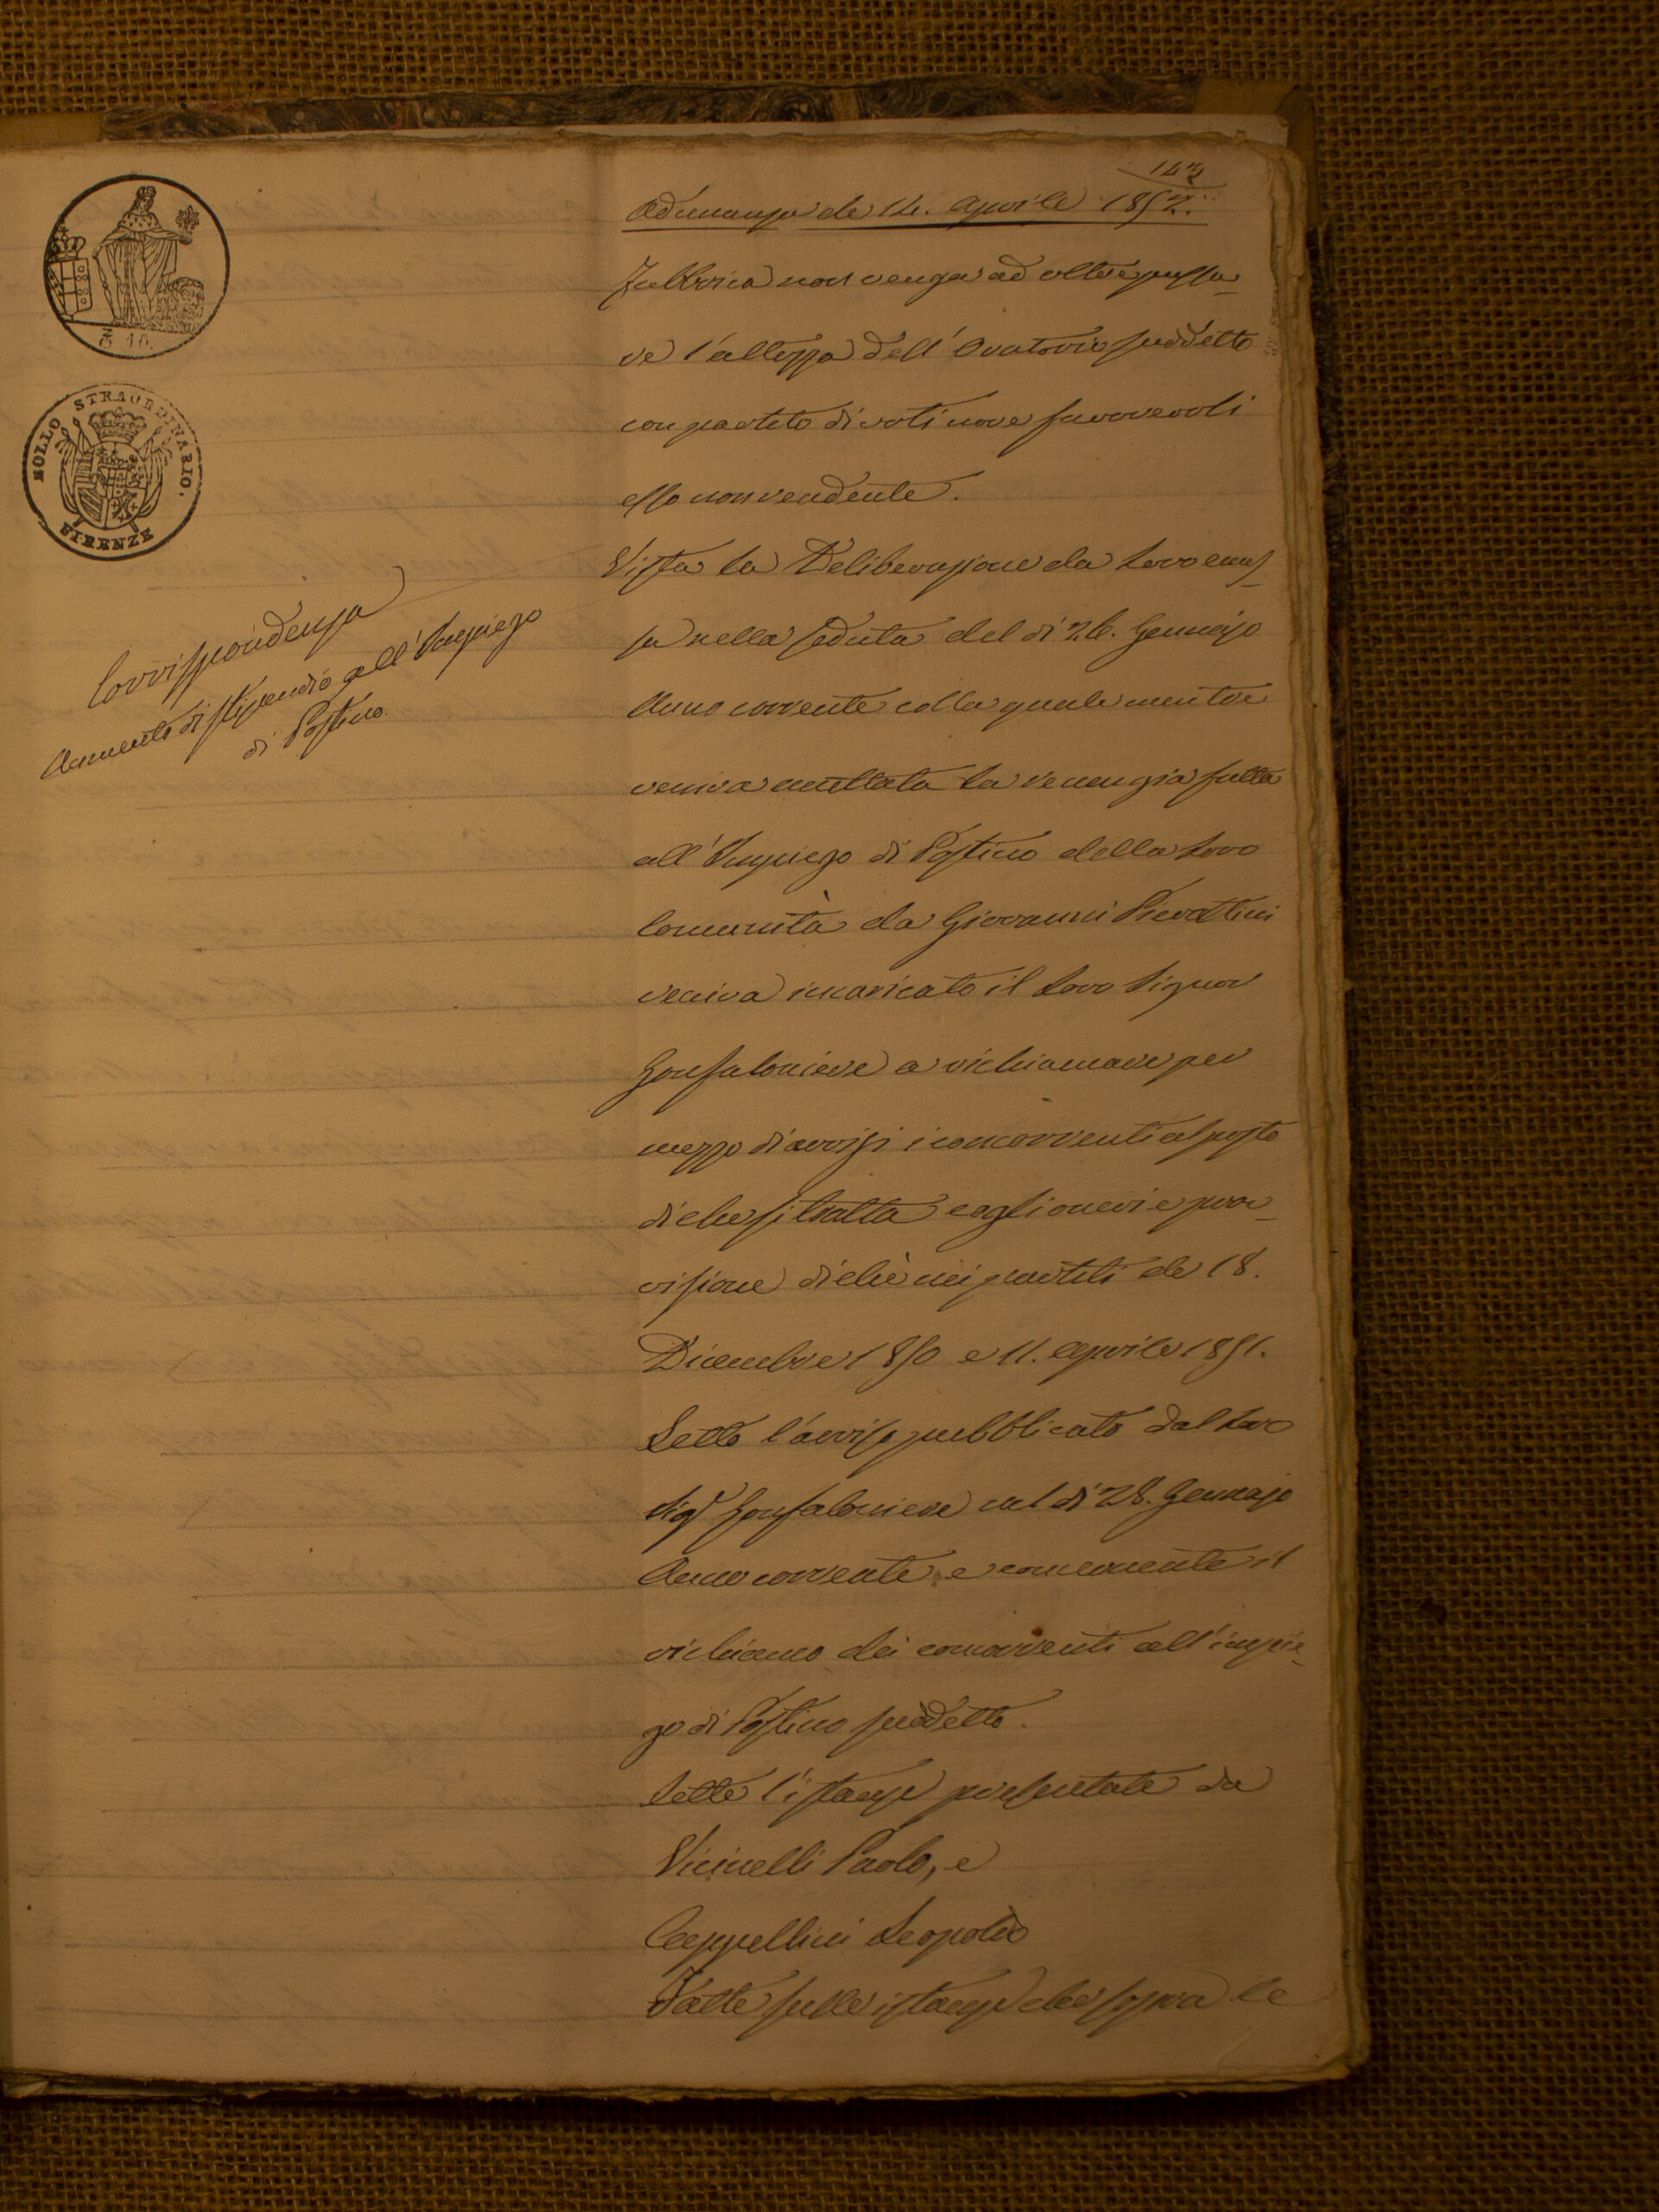 143
Adunanza de 14. Aprile 1852.
Fabbrica non venga ad oltrepassa-
re l'altezza dell'Oratorio suddetto
con partito di voti nove favorevoli
esso non rendente.
Vista la Deliberazione da Loro emes-
sa nella seduta del dì 26. Gennajo
Anno corrente colla quale mentre
veniva accettata la renunzia fatta
all'Impiego di Postino della Loro
Comunità da Giovanni Pierattini
veniva incaricato il Loro Signor
Gonfaloniere a richiamare per
mezzo di avvisi i concorrenti al posto
di che si tratta cogli oneri e prov-
visione di che nei partiti de 18.
Dicembre 1850 e 11. Aprile 1851.
Letto l'avviso pubblicato dal Loro
Sigr Gonfaloniere nel dì 28. Gennajo
Anno corrente e concernente il
richiamo dei concorrenti all'impie-
go di Postino suddetto.
Lette l'istanze presentate da
Vicinelli Paolo, e
Cappellini Leopoldo
Fatte sulle istanze che sopra le
Corrispondenza
Aumento di stipendio all'Impiego
di Postino.
10.
BOLLO STRAORDINARIO.
FIRENZE